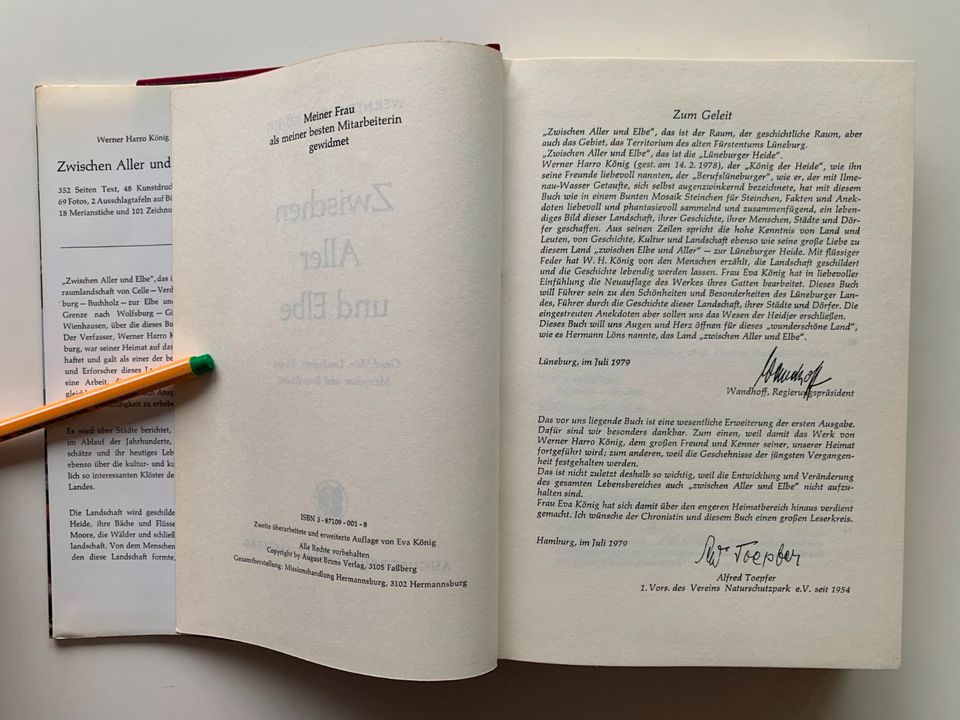 Werner Harro König
Zwischen Aller und
352 Seiten Text, 48 Kunstdruc
69 Fotos, 2 Ausschlagtafeln auf Bi
18 Merianstiche und 101 Zeichnu
„Zwischen Aller und Elbe“, das i
raumlandschaft von Celle – Verd
burg – Buchholz – zur Elbe un
Grenze nach Wolfsburg – Gi
Wienhausen, über die dieses Bu
Der Verfasser, Werner Harro K
burg, war seiner Heimat auf das
haftet und galt als einer der be
und Erforscher dieses L
eine Arbeit, di
gleich
digkeit zu erhebe
Es wird über Städte berichtet,
im Ablauf der Jahrhunderte,
schätze und ihr heutiges Lebe
ebenso über die kultur- und ku
lich so interessanten Klöster de
Landes.
Die Landschaft wird geschilde
Heide, ihre Bäche und Flüsse
Moore, die Wälder und schließ
landschaft. Von dem Menschen
den diese Landschaft formte,
Meiner Frau
als meiner besten Mitarbeiterin
gewidmet
Zwischen
Aller
und Elbe
ISBN 3 - 87109 - 001 - 8
Zweite überarbeitete und erweiterte Auflage von Eva König
Alle Rechte vorbehalten
Copyright by August Bruns Verlag, 3105 Faßberg
Gesamtherstellung: Missionshandlung Hermannsburg, 3102 Hermannsburg
Zum Geleit
„Zwischen Aller und Elbe“, das ist der Raum, der geschichtliche Raum, aber
auch das Gebiet, das Territorium des alten Fürstentums Lüneburg.
„Zwischen Aller und Elbe“, das ist die „Lüneburger Heide“.
Werner Harro König (gest. am 14. 2. 1978), der „König der Heide“, wie ihn
seine Freunde liebevoll nannten, der „Berufslüneburger“, wie er, der mit Ilme-
nau-Wasser Getaufte, sich selbst augenzwinkernd bezeichnete, hat mit diesem
Buch wie in einem Bunten Mosaik Steinchen für Steinchen, Fakten und Anek-
doten liebevoll und phantasievoll sammelnd und zusammenfügend, ein leben-
diges Bild dieser Landschaft, ihrer Geschichte, ihrer Menschen, Städte und Dör-
fer geschaffen. Aus seinen Zeilen spricht die hohe Kenntnis von Land und
Leuten, von Geschichte, Kultur und Landschaft ebenso wie seine große Liebe zu
diesem Land „zwischen Elbe und Aller“ – zur Lüneburger Heide. Mit flüssiger
Feder hat W. H. König von den Menschen erzählt, die Landschaft geschildert
und die Geschichte lebendig werden lassen. Frau Eva König hat in liebevoller
Einfühlung die Neuauflage des Werkes ihres Gatten bearbeitet. Dieses Buch
will Führer sein zu den Schönheiten und Besonderheiten des Lüneburger Lan-
des, Führer durch die Geschichte dieser Landschaft, ihrer Städte und Dörfer. Die
eingestreuten Anekdoten aber sollen uns das Wesen der Heidjer erschließen.
Dieses Buch will uns Augen und Herz öffnen für dieses „wunderschöne Land“,
wie es Hermann Löns nannte, das Land „zwischen Aller und Elbe“.
Lüneburg, im Juli 1979
Wandhoff
Wandhoff, Regierungspräsident
Das vor uns liegende Buch ist eine wesentliche Erweiterung der ersten Ausgabe.
Dafür sind wir besonders dankbar. Zum einen, weil damit das Werk von
Werner Harro König, dem großen Freund und Kenner seiner, unserer Heimat
fortgeführt wird; zum anderen, weil die Geschehnisse der jüngsten Vergangen-
heit festgehalten werden.
Das ist nicht zuletzt deshalb so wichtig, weil die Entwicklung und Veränderung
des gesamten Lebensbereiches auch „zwischen Aller und Elbe“ nicht aufzu-
halten sind.
Frau Eva König hat sich damit über den engeren Heimatbereich hinaus verdient
gemacht. Ich wünsche der Chronistin und diesem Buch einen großen Leserkreis.
Hamburg, im Juli 1979
Toepfer
Alfred Toepfer
1. Vors. des Vereins Naturschutzpark e.V. seit 1954